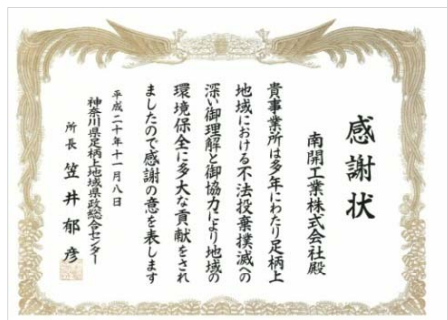 感謝状
南開工業株式会社殿
貴事業所は多年にわたり足柄上
地域における不法投棄撲滅への
深い御理解と御協力により地域の
環境保全に多大な貢献をされ
ましたので感謝の意を表します
平成二十年十一月八日
神奈川県足柄上地域県政総合センター
所長 笠井郁彦